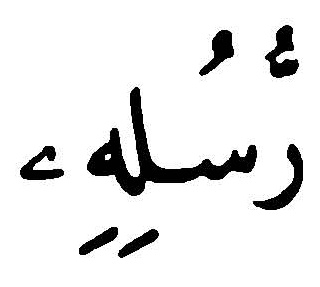 رُّسُلِهِۦ